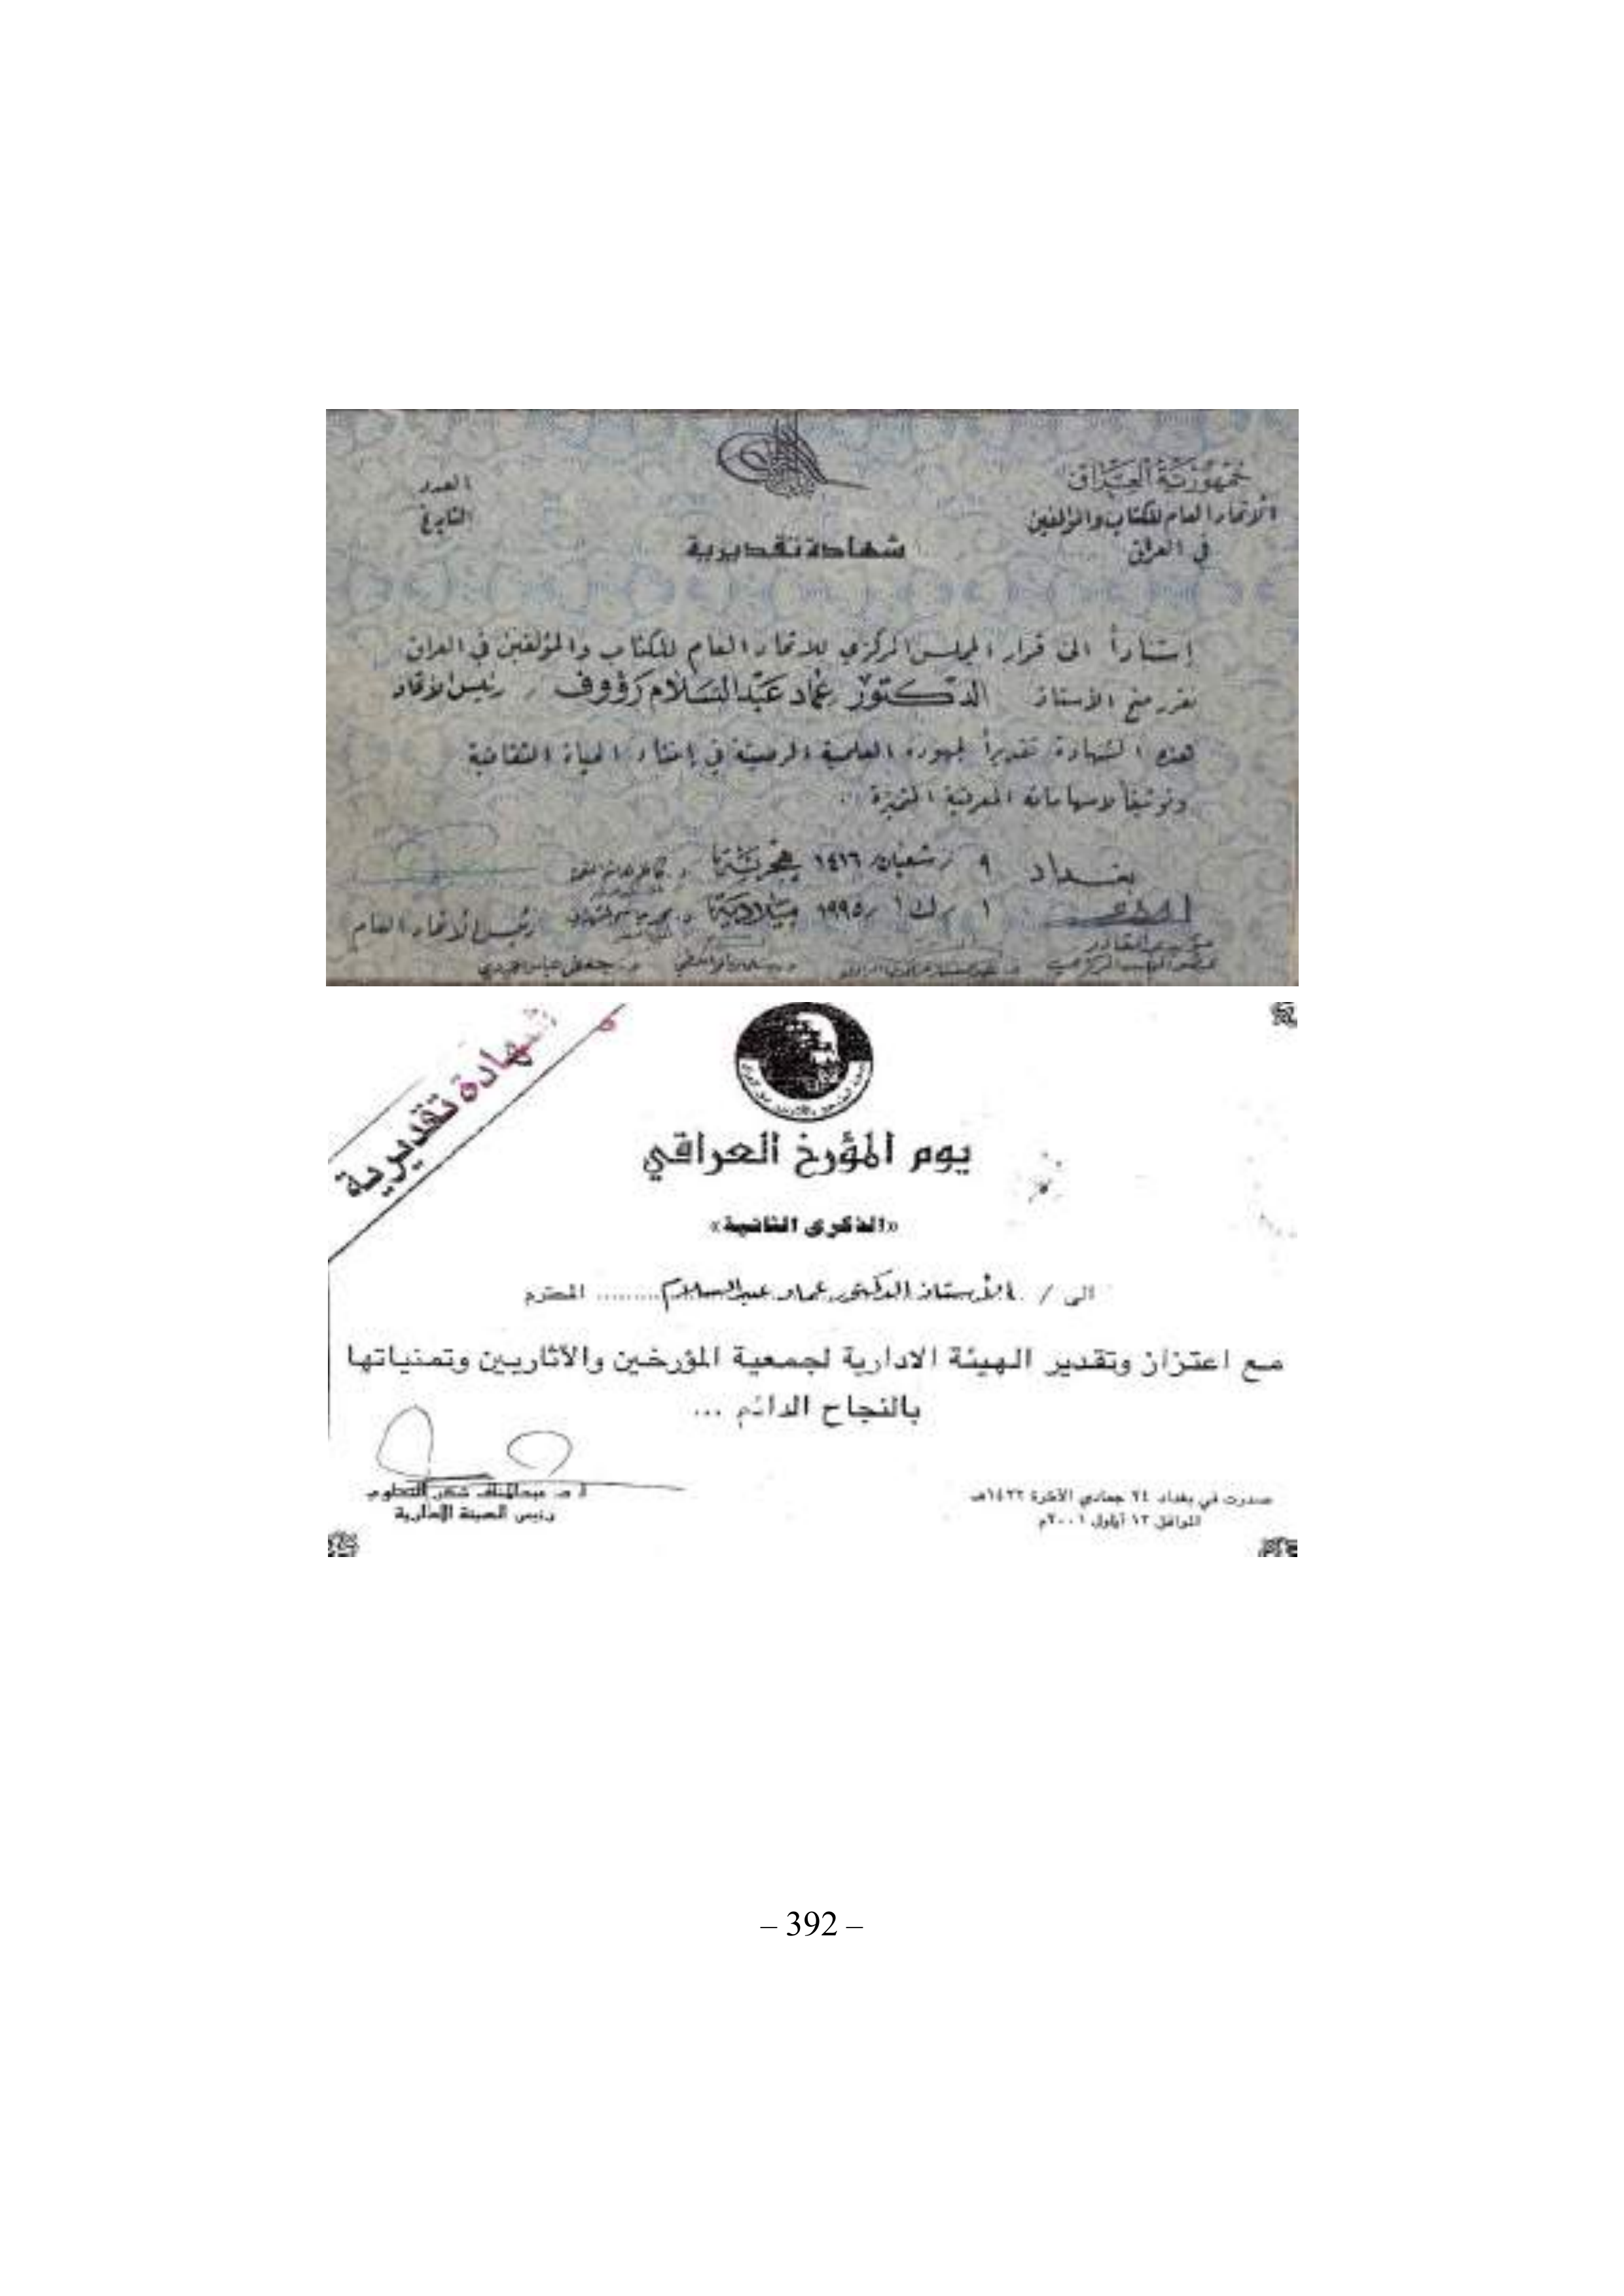 جمهورية العراق
الاتحاد العام للكتاب والمؤلفين
في العراق
العدد
التاريخ
شهادة تقديرية
إستناداً الى قرار المجلس المركزي للاتحاد العام للكتاب والمؤلفين في العراق
نقرر منح الأستاذ الدكتور عماد عبدالسلام رؤوف / رئيس الاتحاد
هذه الشهادة تقديراً لجهوده العلمية الرصينة في إغناء الحياة الثقافية
وتوثيقاً لاسهاماته المعرفية المتميزة .
بغداد ٩ / شعبان / ١٤١٦ هجرية
١ / ك١ / ١٩٩٥ ميلادية
رئيس الاتحاد العام
شهادة تقديرية
يوم المؤرخ العراقي
«الذكرى الثانية»
الى / الأستاذ الدكتور عماد عبدالسلام ......... المحترم
مع اعتزاز وتقدير الهيئة الادارية لجمعية المؤرخين والآثاريين وتمنياتها
بالنجاح الدائم ...
صدرت في بغداد ٢٤ جمادي الآخرة ١٤٢٢هـ
الموافق ١٢ أيلول ٢٠٠١م
أ. د. عبدالمناف شكر
رئيس الهيئة الادارية
– 392 –